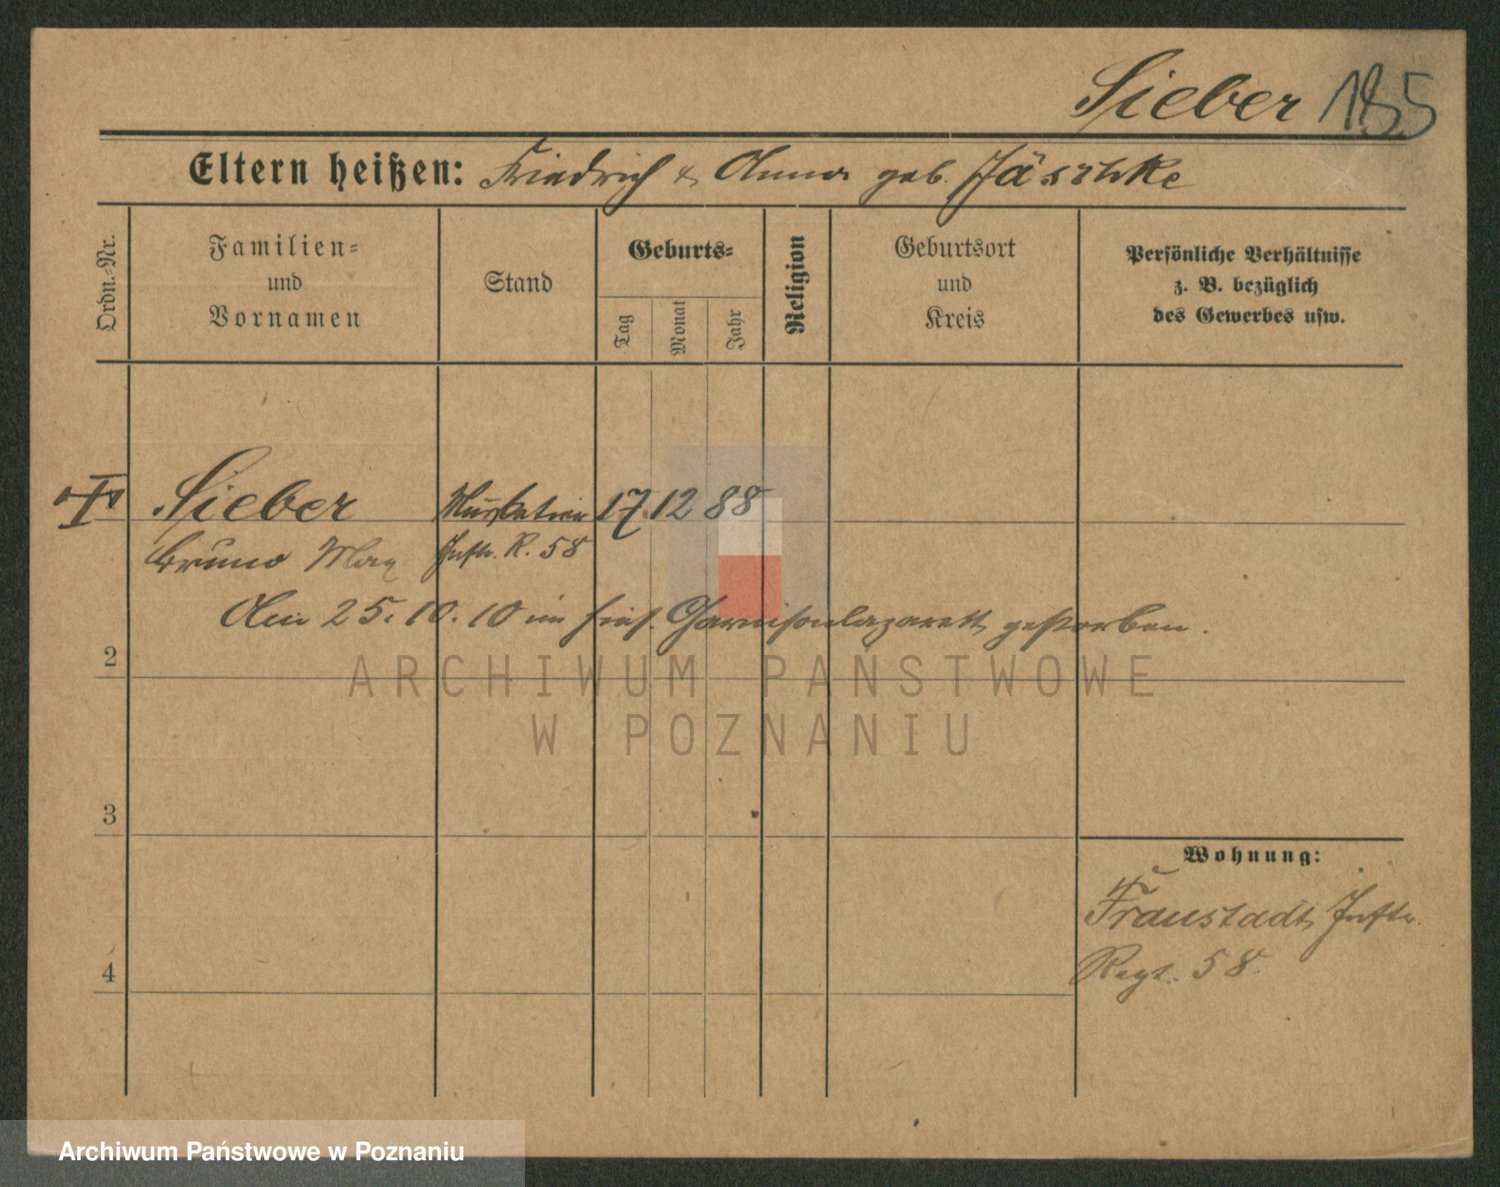 Sieber 185
Eltern heißen: Friedrich & Anna geb. Jäschke
Ordn.-Nr.
Familien-
und
Vornamen
Stand
Geburts-
Tag
Monat
Jahr
Religion
Geburtsort
und
Kreis
Persönliche Verhältnisse
z. B. bezüglich
des Gewerbes usw.
Sieber Musketier 17. 12 88
Bruno Max Inftr. R. 58
Am 25. 10. 10 im hies. Garnisonlazarett gestorben.
2
ARCHIWUM PAŃSTWOWE
W POZNANIU
3
Wohnung:
Fraustadt, Inftr.
Regt. 58.
4
Archiwum Państwowe w Poznaniu